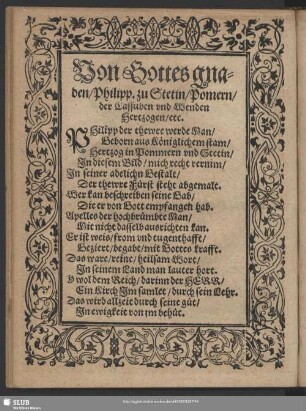 Von Gottes gna-
den / Philipp. zu Stetin / Pomern /
der Cassuben vnd Wenden
Hertzogen / etc.
PHilipp der thewre werde Man /
Geborn aus Königlichem stam /
Hertzog in Pommern vnd Stetin /
In diesem Bild / mich recht vernim /
In seiner adelichn Gestalt /
Der thewre Fürst stehe abgemalt.
Wer kan beschreiben seine Gab /
Die er von Gott empfangen hab.
Apelles der hochbrümbte Man /
Mit nicht dasselb ausrichten kan.
Er ist weis / from vnd tugenthafft /
Geziert / begabt / mit Gottes krafft.
Das ware / reine / heilsam Wort /
In seinem Land man lauter hort.
O wol dem Reich / darinn der HERR /
Ein Kirch Im samlet / durch sein Lehr.
Das wird allzeit durch seine güt /
In ewigkeit von im behüt.
SLUB